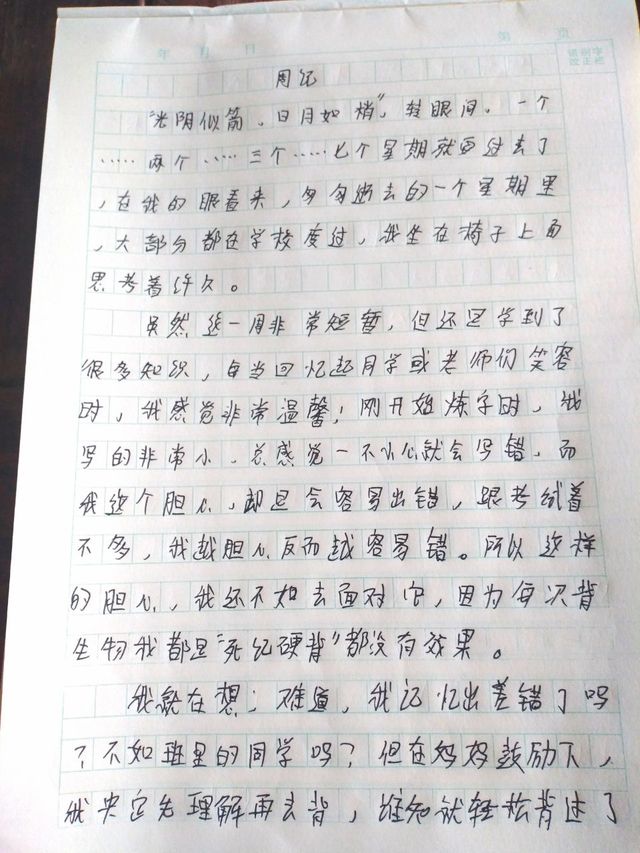 年 月 日
第 页
错别字
改正栏
周记
“光阴似箭,日月如梭”,转眼间,一个
……两个……三个……七个星期就要过去了
,在我的眼看来,匆匆逝去的一个星期里
,大部分都在学校度过,我坐在椅子上面
思考着许久。
虽然这一周非常短暂,但还是学到了
很多知识,每当回忆起同学或老师们笑容
时,我感觉非常温馨;刚开始炼字时,我
写的非常小,总感觉一不小心就会写错,而
我这个胆心,却是会容易出错,跟考试着
不多,我越胆心反而越容易错。所以这样
的胆心,我还不如去面对它,因为每次背
生物我都是“死纪硬背”都没有效果。
我就在想;难道,我记忆出差错了吗
?不如班里的同学吗?但在妈妈鼓励下,
我决定先理解再去背,谁知就轻松背过了